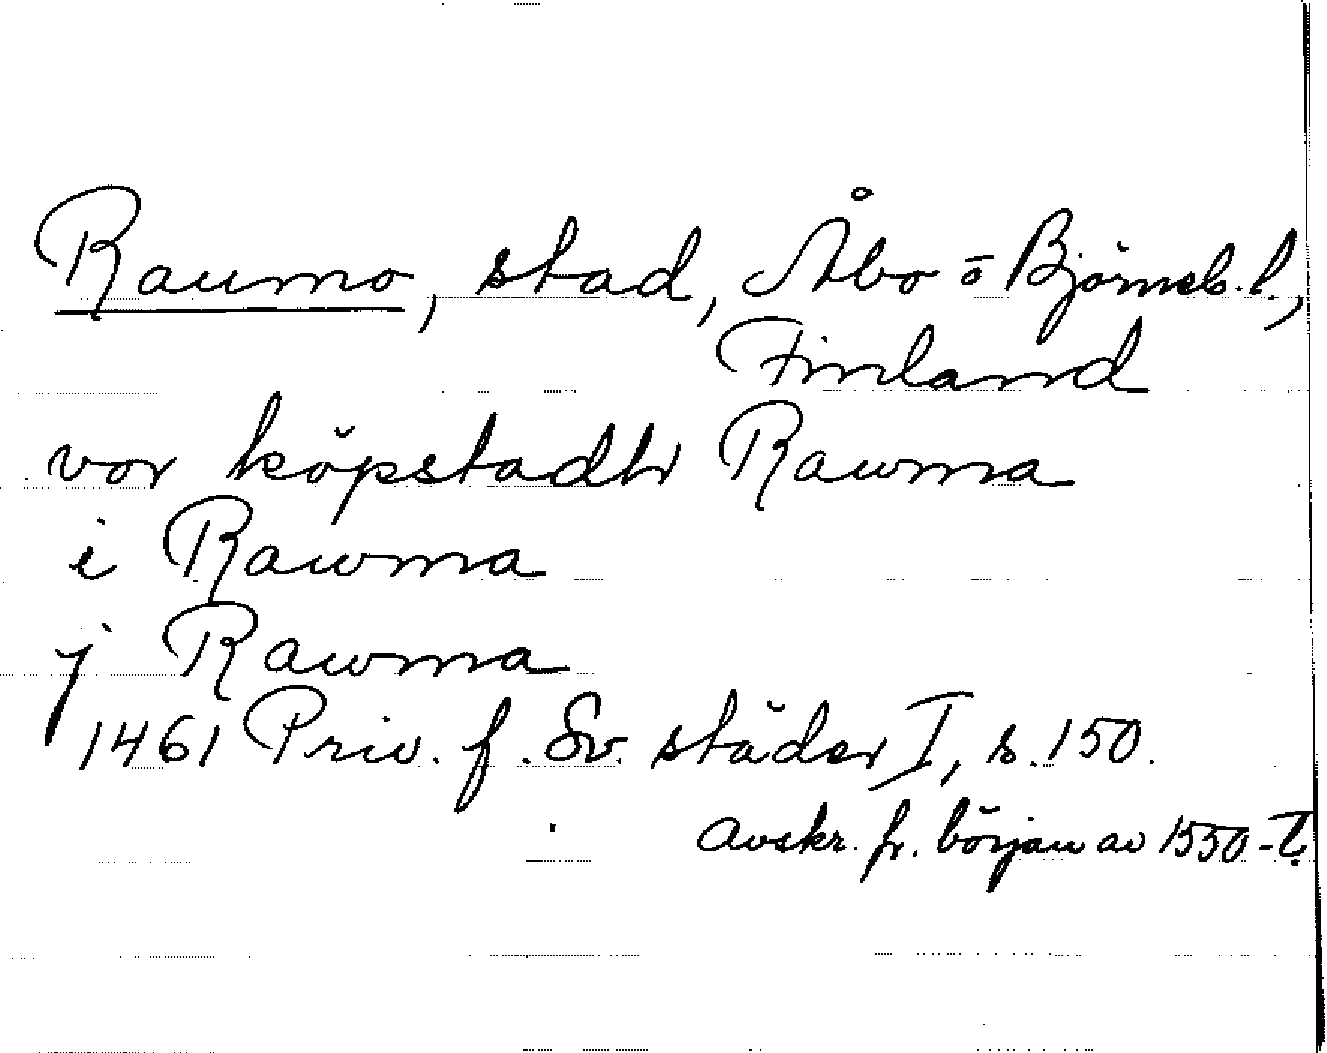 Raumo, stad, Åbo o Björneb. l.,
Finland
vor köpstadh Rawma
i Rawma
j Rawma
1461 Priv. f. Sv. städer I, s. 150.
Avskr. fr. början av 1550-t.